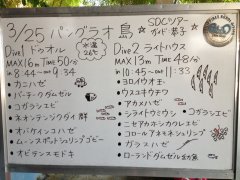 3/25 パングラオ島 ☆ SDCツアー
ガイド
Dive 1 ドゥオル 水温26℃
MAX 16m Time 50分
in 8:44 ー 9:34
・カニハゼ
・バーチークダムゼル
・コガラシエビ
・ネオンテンジクダイ群
・オバケインコハゼ
・ムーンスポットシュリンプゴビー
・オビテンスモドキ
Dive 2 ライトハウス
MAX 13m Time 48分
in 10:45 ー 11:33
・ヨロイウオ
・ウスコオキナワ
・アカメハゼ
・コガラシエビ
・ニセアカホシカクレエビ
・コロールアネモネシュリンプ
・ガラスハゼ
・ローランドダムゼル幼魚